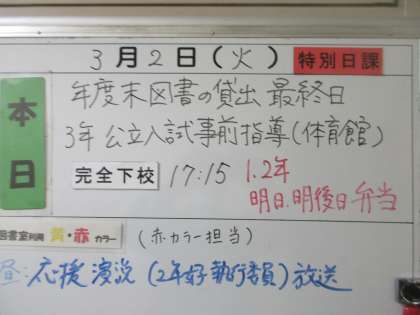 3月2日(火) 特別日課
本日
年度末図書の貸出 最終日
3年 公立入試事前指導(体育館)
完全下校 17:15 1.2年
明日、明後日 弁当
図書室利用 黄・赤 カラー (赤カラー担当)
昼:応援演説(2年 執行委員)放送